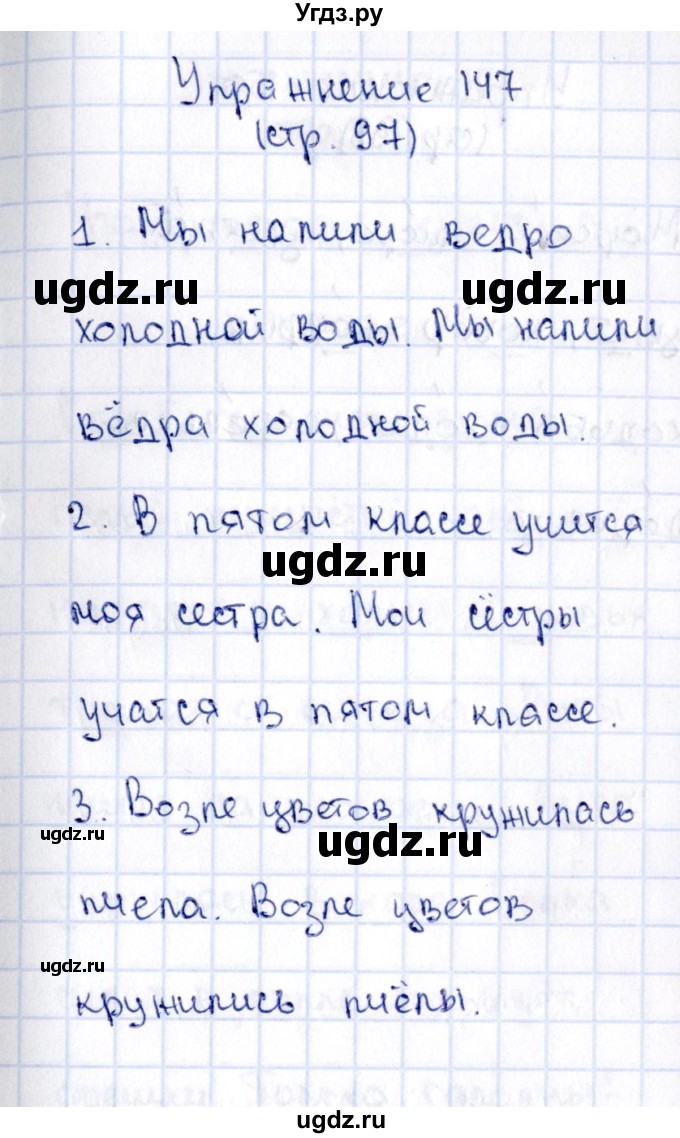 Угдз.ру
Упражнение 147
(стр. 97)
1. Мы налили ведро
ugdz.ru ugdz.ru
холодной воды. Мы налили
вёдра холодной воды.
2. В пятом классе учится
ugdz.ru
моя сестра. Мои сёстры
учатся в пятом классе.
3. Возле цветов кружилась
ugdz.ru ugdz.ru
пчела. Возле цветов
ugdz.ru
кружились пчёлы.
ugdz.ru